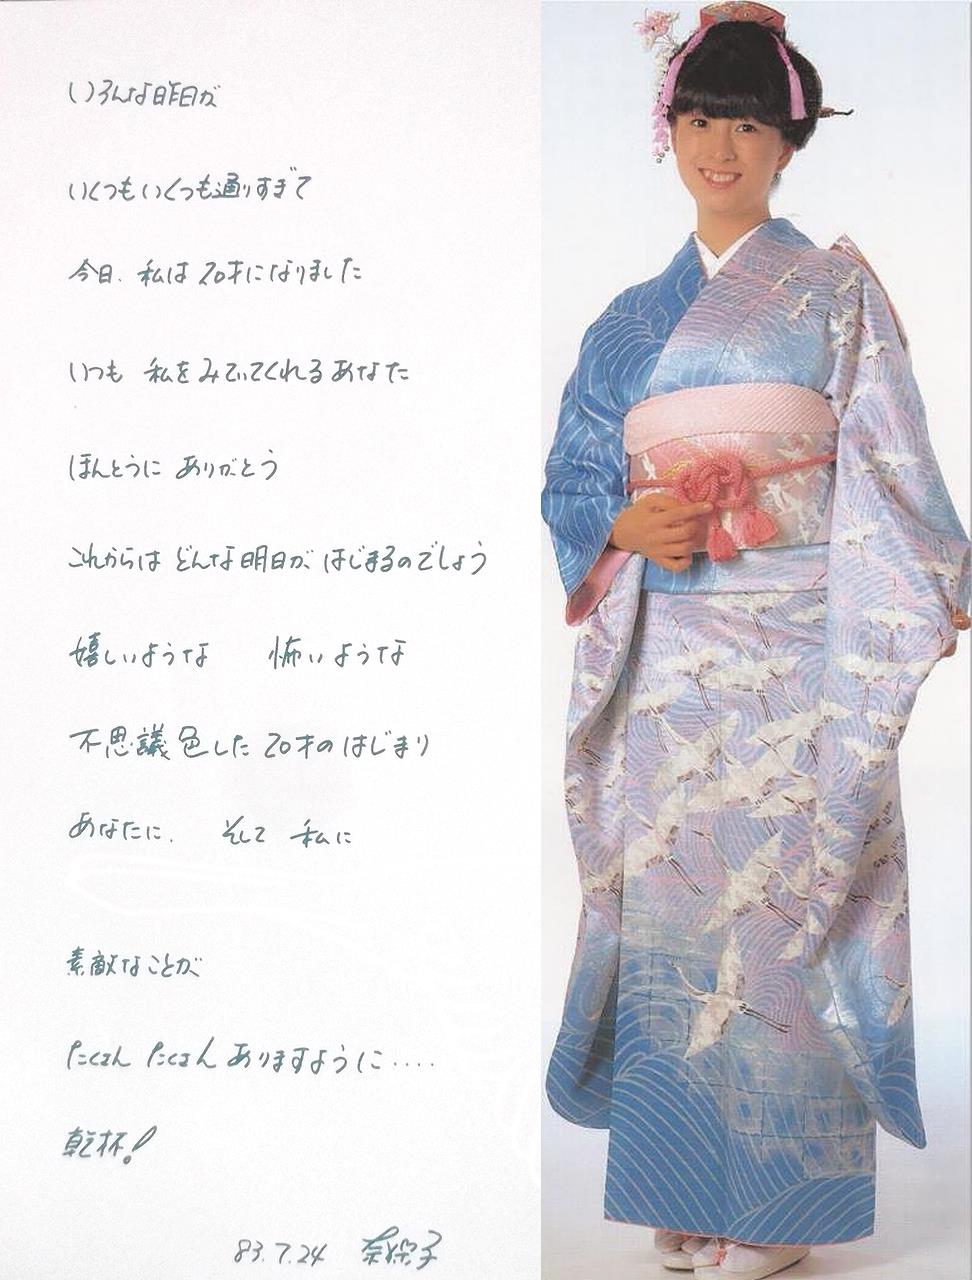 いろんな昨日が
いくつもいくつも通りすぎて
今日、私は20才になりました
いつも 私をみていてくれるあなた
ほんとうに ありがとう
これからは どんな明日が はじまるのでしょう
嬉しいような 怖いような
不思議色した 20才のはじまり
あなたに、 そして 私に
素敵なことが
たくさん たくさん ありますように‥‥
乾杯!
83.7.24 奈保子